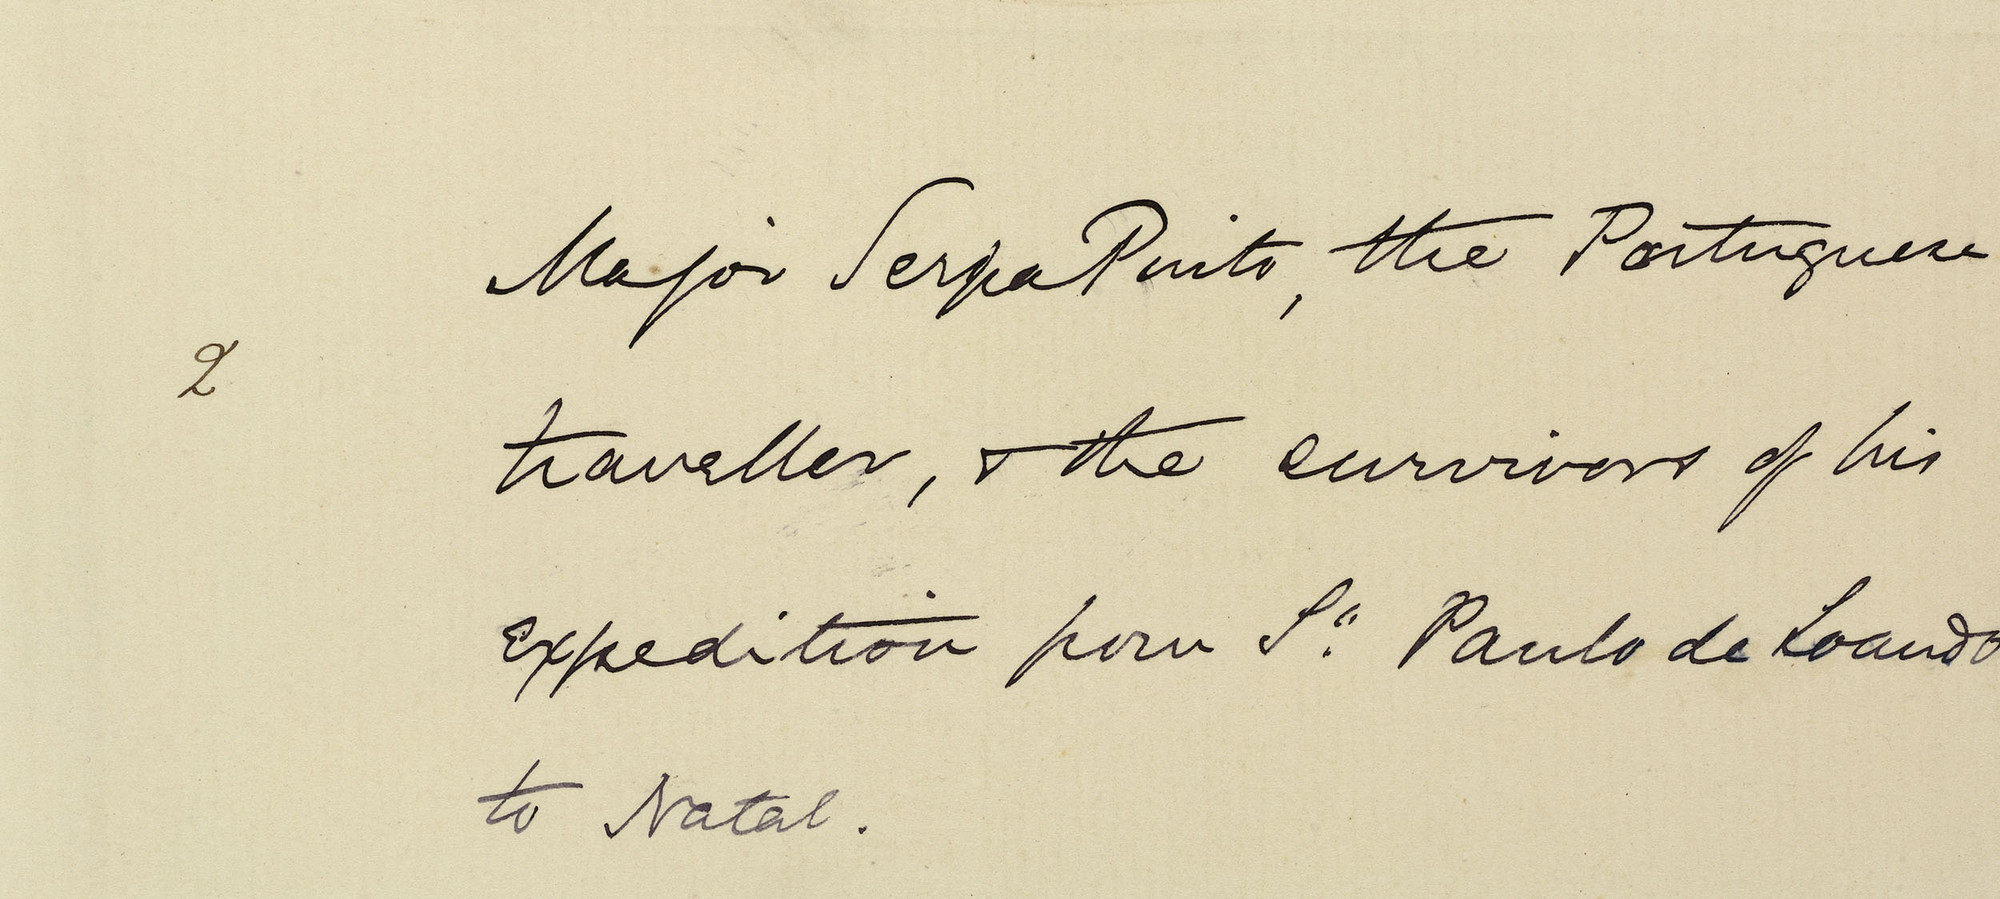 Major Serpa Pinto, the Portuguese
2
traveller, & the survivors of his
Expedition from S.ª Paulo de Loando
to Natal.